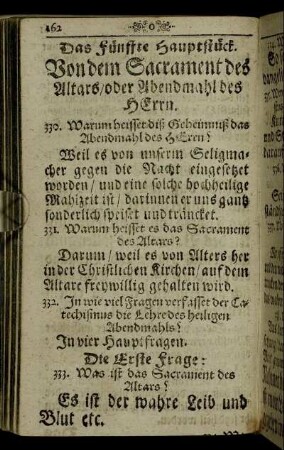 162
Das Fünffte Hauptstück.
Von dem Sacrament des
Altars/oder Abendmahl des
HErrn.
330. Warum heisset diß Geheimniß das
Abendmahl des HErrn?
Weil es von unserm Seligma-
cher gegen die Nacht eingesetzt
worden/ und eine solche hochheilige
Mahlzeit ist/ darinnen er uns gantz
sonderlich speiset und träncket.
331. Warum heisst es das Sacrament
des Altars?
Darum/ weil es von Alters her
in der Christlichen Kirchen/auf dem
Altare freywillig gehalten wird.
332. In wie viel Fragen verfasset der Ca-
techismus die Lehre des heiligen
Abendmahls?
In vier Hauptfragen.
Die Erste Frage:
333. Was ist das Sacrament des
Altars?
Es ist der wahre Leib und
Blut etc.